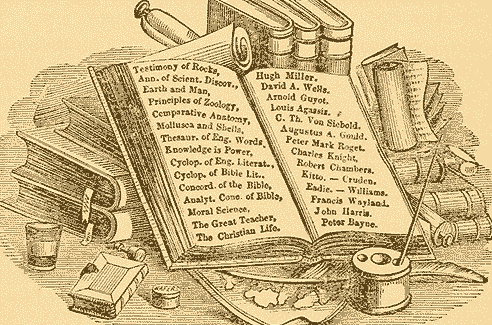 Testimony of Rocks,
Ann. of Scient. Discov.,
Earth and Man,
Principles of Zoology,
Comparative Anatomy,
Mollusca and Shells,
Thesaur. of Eng. Words
Knowledge is Power,
Cyclop. of Eng. Literat.,
Cyclop. of Bible Lit.,
Concord. of the Bible,
Analyt. Conc. of Bible,
Moral Science,
The Great Teacher,
The Christian Life.
Hugh Miller.
David A. Wells.
Arnold Guyot.
Louis Agassiz.
C. Th. Von Siebold.
Augustus A. Gould.
Peter Mark Roget.
Charles Knight.
Robert Chambers.
Kitto. — Cruden.
Eadie. — Williams.
Francis Wayland.
John Harris.
Peter Bayne.